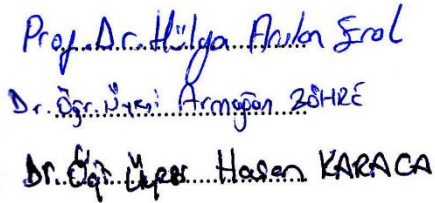 Prof. Dr. Hülya Arslan Erol
Dr. Öğr. Üyesi Armağan ZÖHRE
Dr. Öğr. Üyesi Hasan KARACA